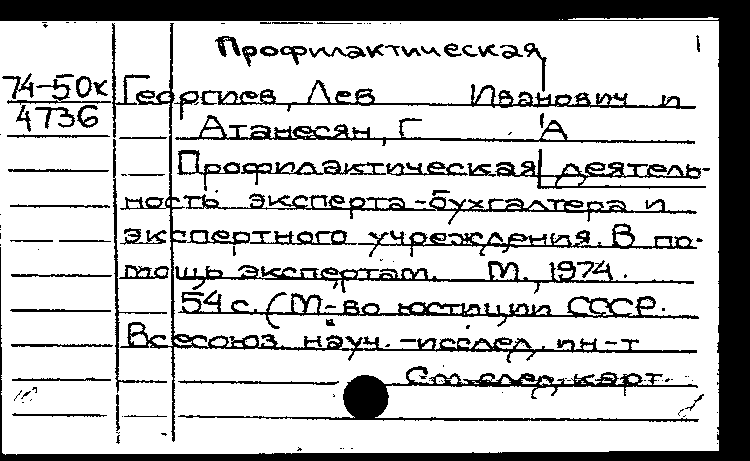 Профилактическая 1
74-50к Георгиев, Лев Иванович и
4736 Атанесян, Г А
Профилактическая деятель-
ность эксперта-бухгалтера и
экспертного учреждения. В по-
мощь экспертам. М., 1974.
54 с. (М-во юстиции СССР.
Всесоюз. науч.-исслед. ин-т
См. след. карт.